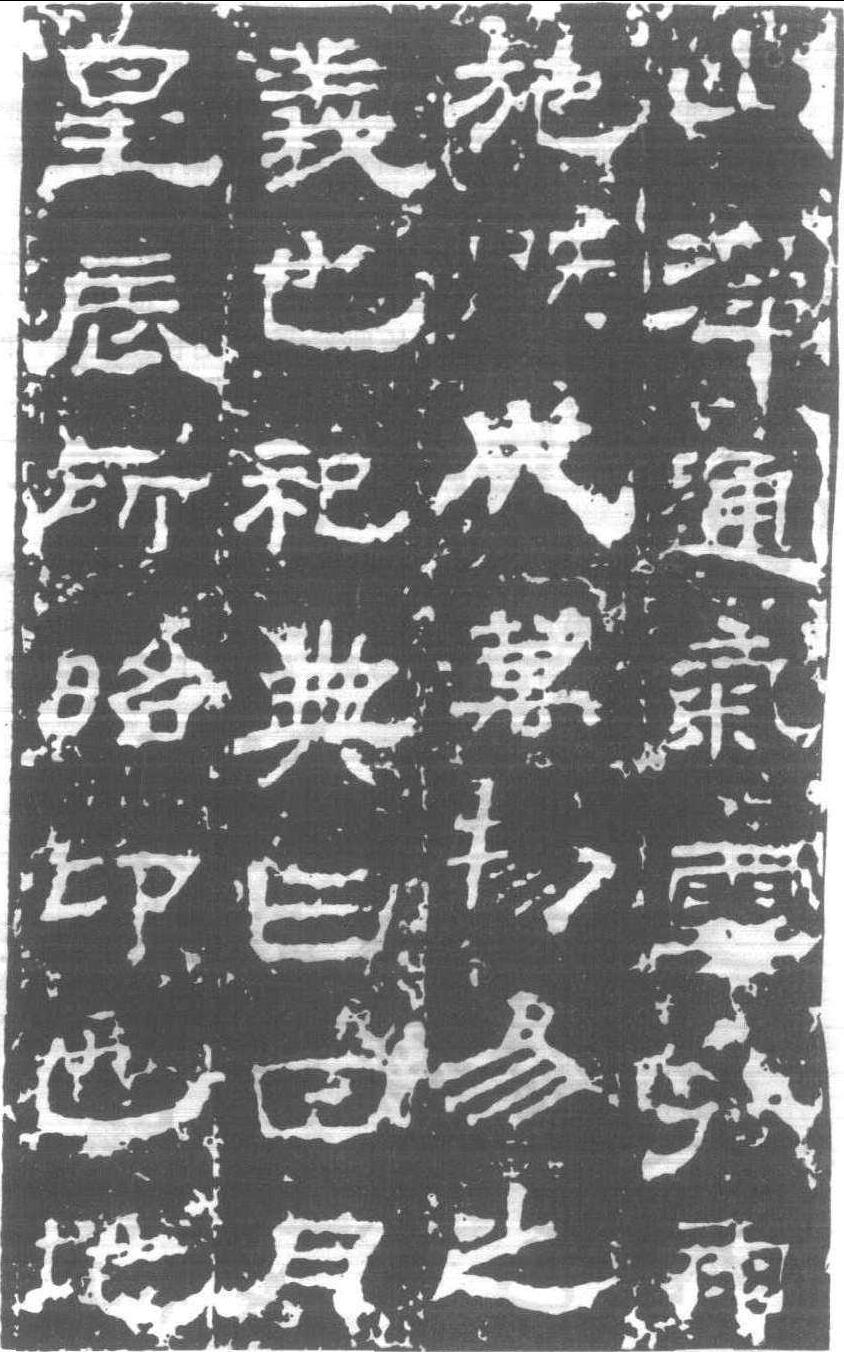 山澤通氣雲行雨
施既成萬物易之
義也祀典曰日月
星辰所昭卬也地